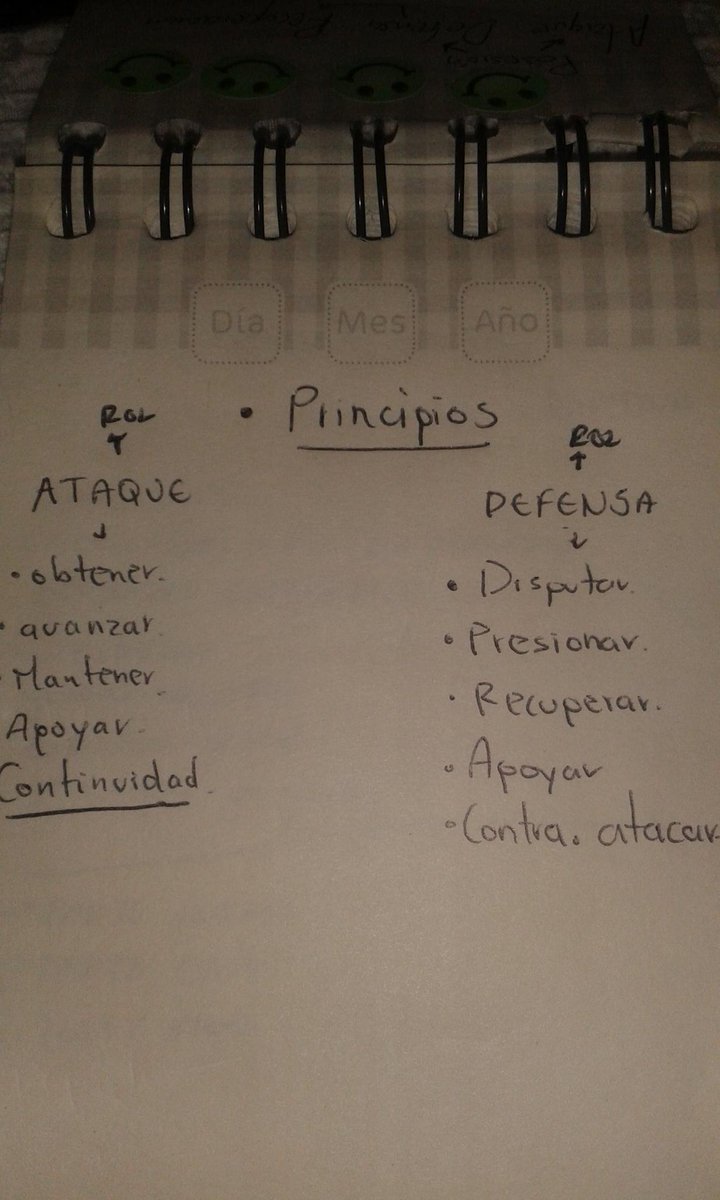 Ataque - Defensa
Posesión
Día Mes Año
• Principios
ROL
ATAQUE
• obtener.
• avanzar.
• Mantener.
Apoyar.
Continuidad.
ROL
DEFENSA
• Disputar.
• Presionar.
• Recuperar.
• Apoyar
• Contra. atacar.